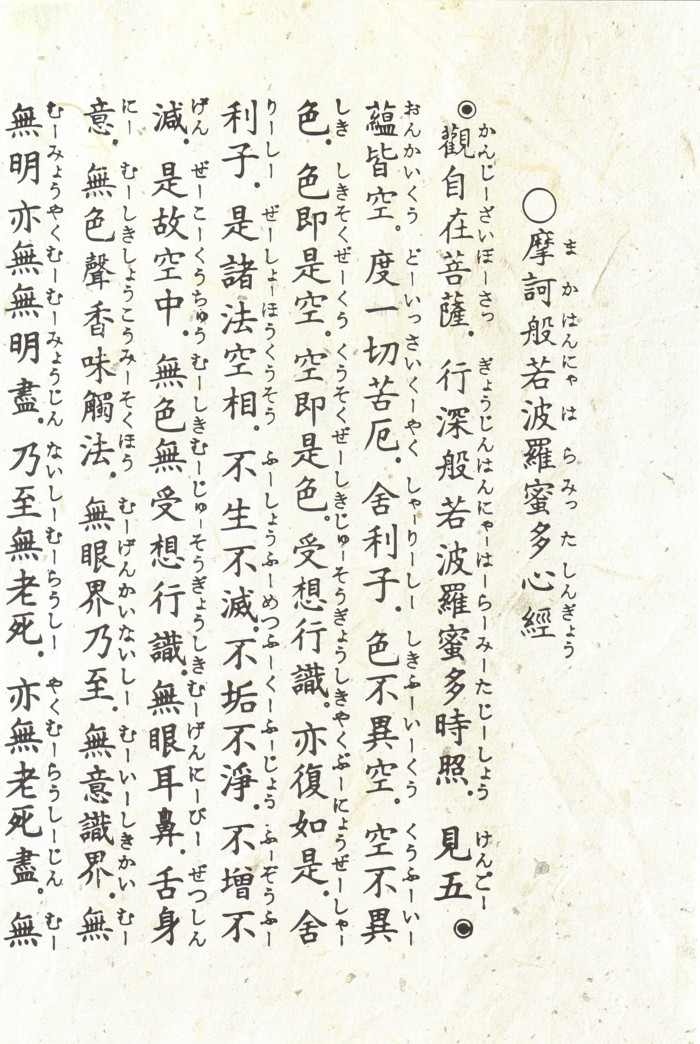 ま か はんにゃ は ら みっ た しんぎょう
◯摩訶般若波羅蜜多心經
かんじーざいぼーさっ ぎょうじんはんにゃーはーらーみーたじーしょう けんごー
◉觀自在菩薩。行深般若波羅蜜多時照。見五◉
おんかいくう どーいっさいくーやく しゃーりーしー しきふーいーくう くうふーいー
蘊皆空。度一切苦厄。舍利子。色不異空。空不異
しき しきそくぜーくう くうそくぜーしきじゅーそうぎょうしきやくぶーにょうぜーしゃー
色。色即是空。空即是色。受想行識。亦復如是。舍
りーしー ぜーしょーほうくうそう ふーしょうふーめつふーくーふーじょう ふーぞうふー
利子。是諸法空相。不生不滅。不垢不淨。不增不
げん ぜーこーくうちゅう むーしきむーじゅーそうぎょうしきむーげんにーびー ぜつしん
減。是故空中。無色無受想行識。無眼耳鼻。舌身
にー むーしきしょうこうみーそくほう むーげんかいないしー むーいーしきかい むー
意。無色聲香味觸法。無眼界乃至。無意識界。無
むーみょうやくむーむーみょうじん ないしーむーらうしー やくむーらうしーじん むー
無明亦無無明盡。乃至無老死。亦無老死盡。無